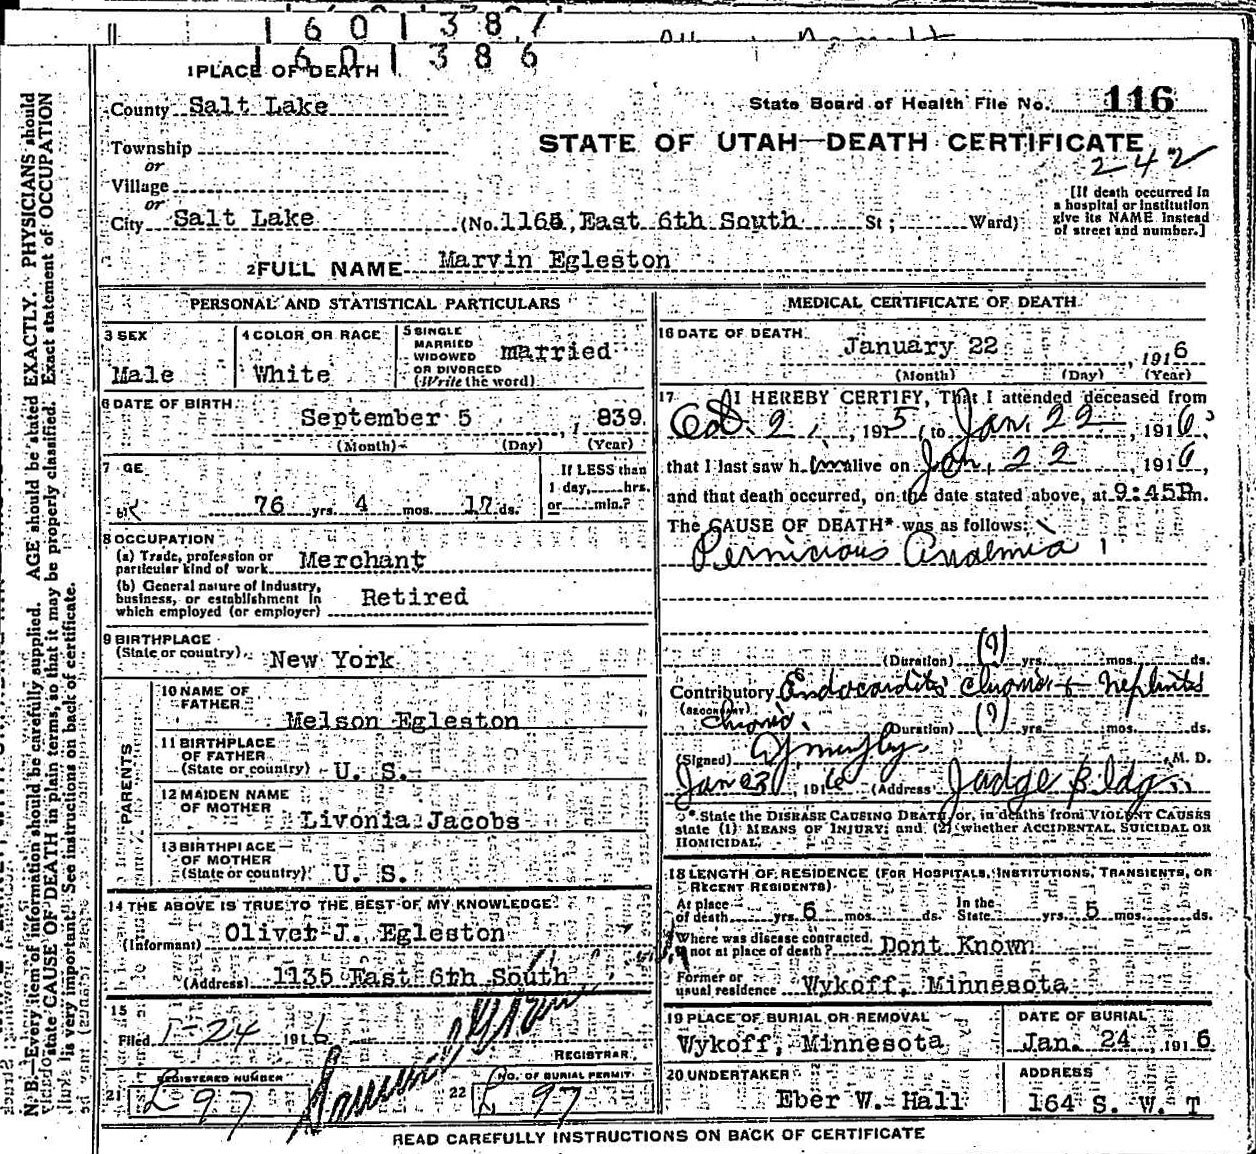 1601387
1601386
1 PLACE OF DEATH
County Salt Lake
State Board of Health File No. 116
STATE OF UTAH—DEATH CERTIFICATE
242
Township
or
Village
or
City Salt Lake (No. 1165, East 6th South St; Ward)
[If death occurred in
a hospital or institution
give its NAME instead
of street and number.]
2 FULL NAME Marvin Egleston
PERSONAL AND STATISTICAL PARTICULARS
3 SEX
Male
4 COLOR OR RACE
White
5 SINGLE
MARRIED
WIDOWED
OR DIVORCED
(Write the word)
married
6 DATE OF BIRTH
September 5, 1839
(Month) (Day) (Year)
7 GE
76 yrs. 4 mos. 17 ds.
If LESS than
1 day, hrs.
or min.?
8 OCCUPATION
(a) Trade, profession or
particular kind of work Merchant
(b) General nature of Industry,
business, or establishment in
which employed (or employer) Retired
9 BIRTHPLACE
(State or country) New York
PARENTS
10 NAME OF
FATHER
Melson Egleston
11 BIRTHPLACE
OF FATHER
(State or country) U. S.
12 MAIDEN NAME
OF MOTHER
Livonia Jacobs
13 BIRTHPLACE
OF MOTHER
(State or country) U. S.
14 THE ABOVE IS TRUE TO THE BEST OF MY KNOWLEDGE
(Informant) Oliver J. Egleston
(Address) 1135 East 6th South
15
Filed 1-24 1916
REGISTRAR
21 REGISTERED NUMBER
L 97
22 NO. OF BURIAL PERMIT
L 97
MEDICAL CERTIFICATE OF DEATH
16 DATE OF DEATH
January 22, 1916
(Month) (Day) (Year)
17 I HEREBY CERTIFY, That I attended deceased from
Oct. 2, 1915, to Jan. 22, 1916,
that I last saw him alive on Jan. 22, 1916,
and that death occurred, on the date stated above, at 9:45P m.
The CAUSE OF DEATH* was as follows:
Pernicious Anaemia
(Duration) (?) yrs. mos. ds.
Contributory Endocarditis chronic + Nephritis
(SECONDARY) chronic.
(Duration) (?) yrs. mos. ds.
(Signed) M. D.
Jan 23, 1916 (Address) Judge Bldg.
* State the DISEASE CAUSING DEATH, or, in deaths from VIOLENT CAUSES
state (1) MEANS OF INJURY; and (2) whether ACCIDENTAL, SUICIDAL OR
HOMICIDAL.
18 LENGTH OF RESIDENCE (FOR HOSPITALS, INSTITUTIONS, TRANSIENTS, OR
RECENT RESIDENTS)
At place
of death yrs. 6 mos. ds. In the
State yrs. 5 mos. ds.
Where was disease contracted,
if not at place of death? Dont Known
Former or
usual residence Wykoff, Minnesota
19 PLACE OF BURIAL OR REMOVAL
Wykoff, Minnesota
DATE OF BURIAL
Jan. 24, 1916
20 UNDERTAKER
Eber W. Hall
ADDRESS
164 S. W. T
READ CAREFULLY INSTRUCTIONS ON BACK OF CERTIFICATE
N. B.—Every item of information should be carefully supplied. AGE should be stated EXACTLY. PHYSICIANS should
state CAUSE OF DEATH in plain terms, so that it may be properly classified. Exact statement of OCCUPATION
is very important. See instructions on back of certificate.